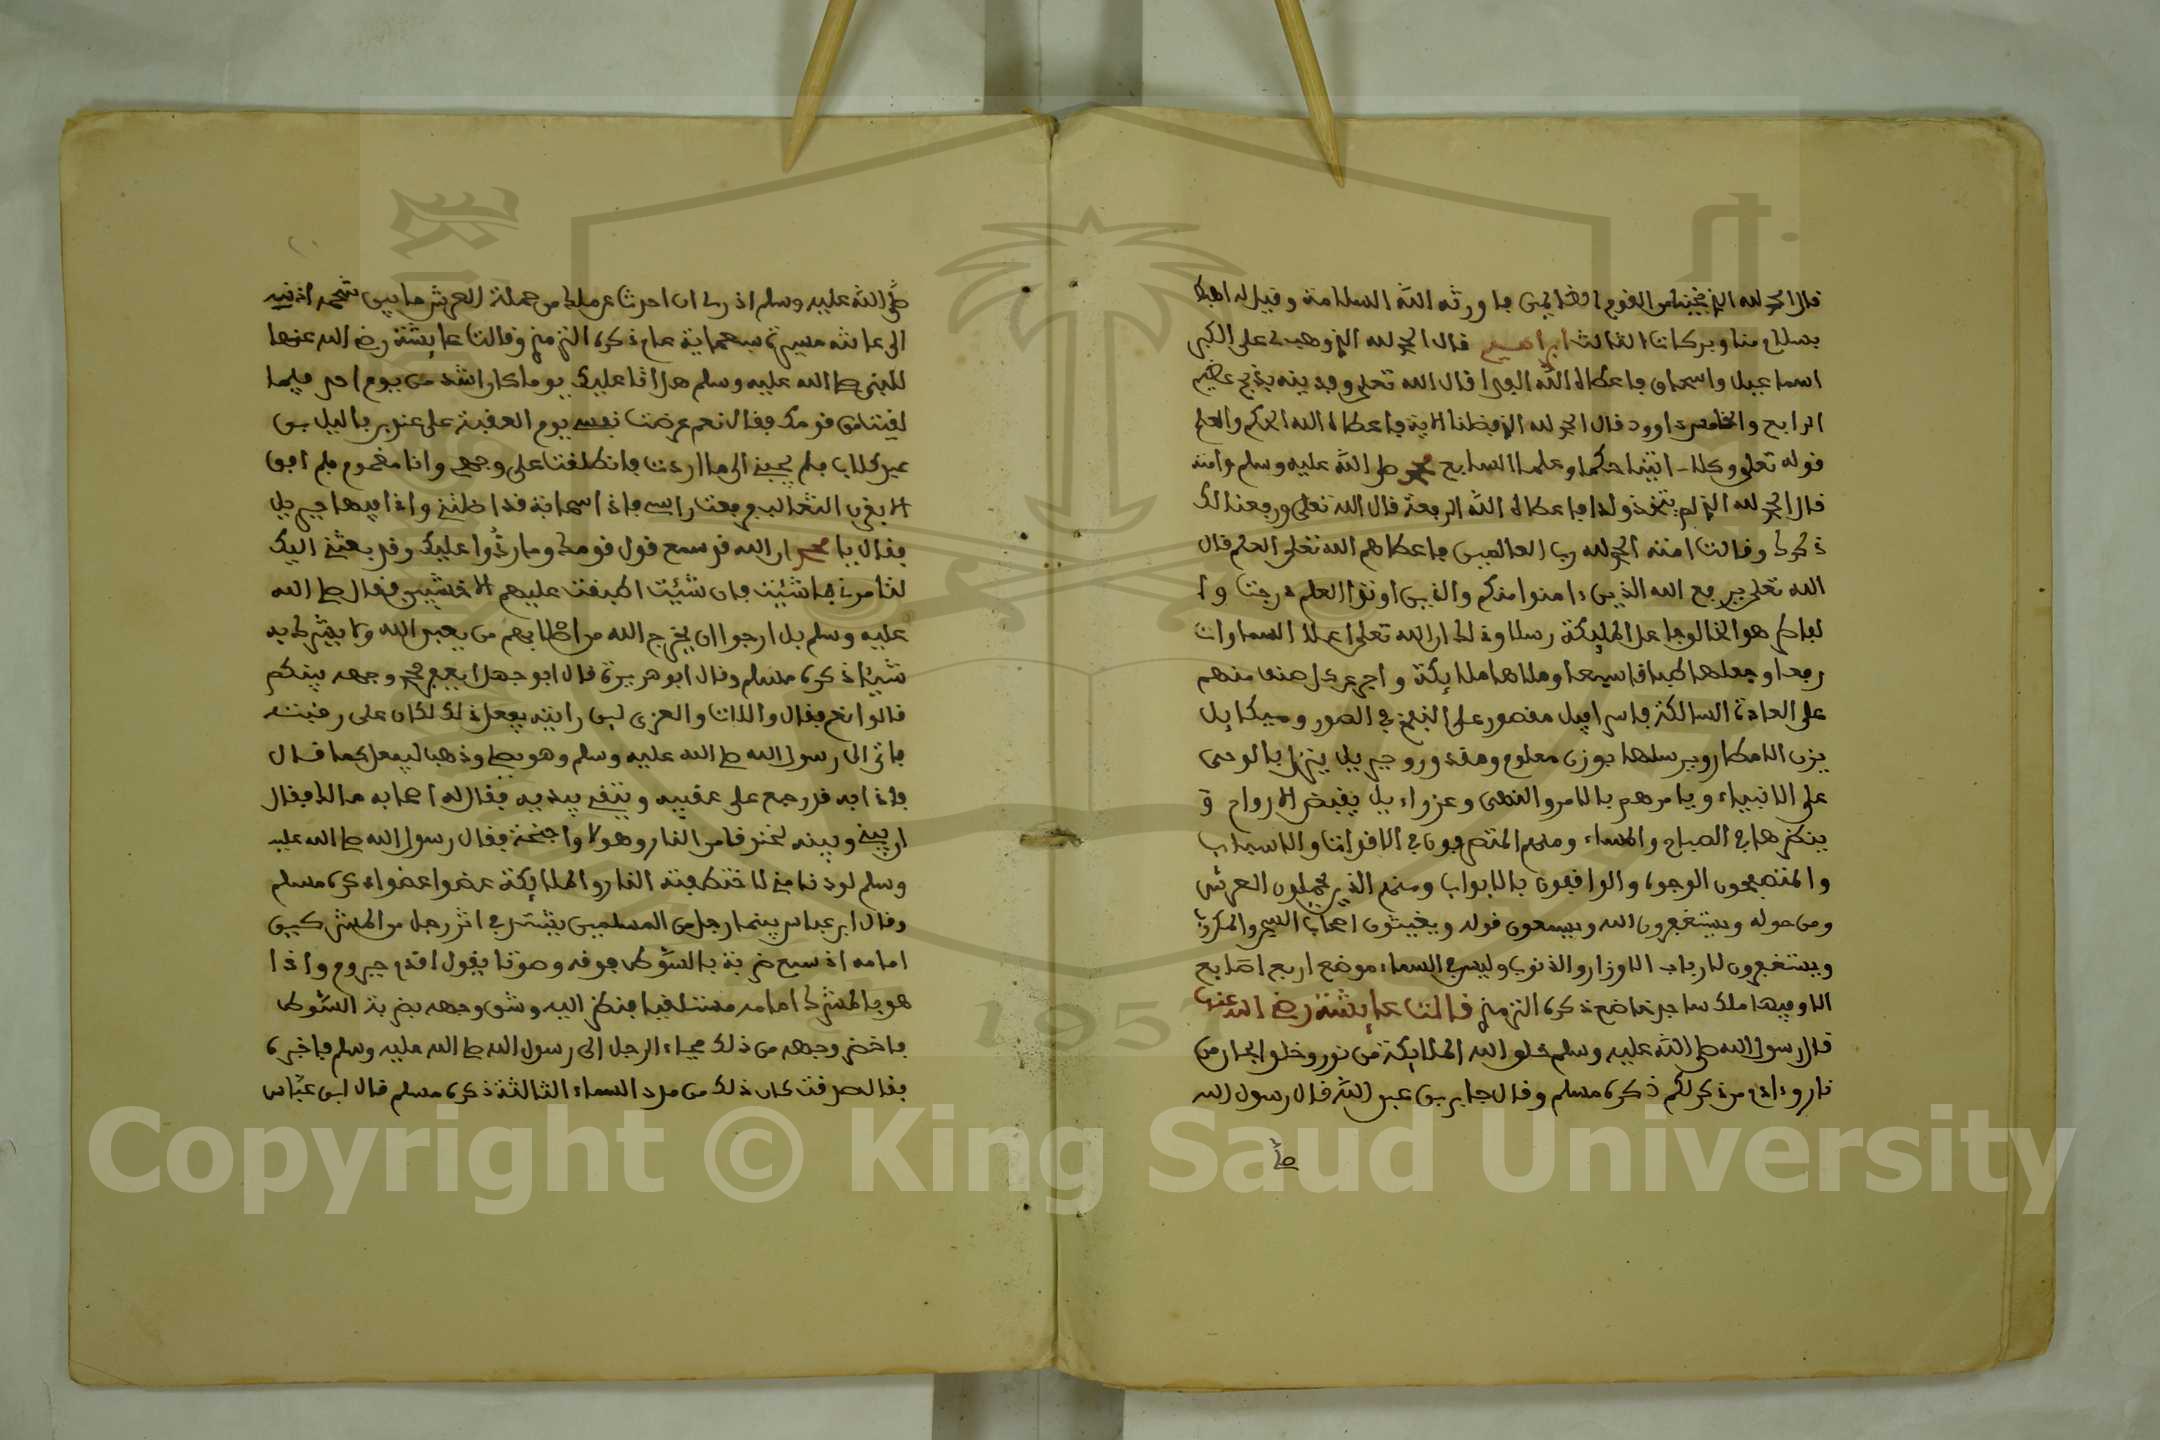 قال الحمد لله الذي نجينا من القوم الظالمين فاورثه الله السلامة وقيل له اهبط
بسلام منا وبركات الثالث ابراهيم قال الحمد لله الذي وهب لي على الكبر
اسماعيل واسحاق فاعطاه الله الفدا قال الله تعلى وفديناه بذبح عظيم
الرابع والخامس داوود قال الحمد لله الذي فضلنا الاية فاعطاه الله الحكم والعلم
قوله تعلى وكلا اتينا حكما وعلما السابع محمد صلى الله عليه وسلم وامته
قال الحمد لله الذي لم يتخذ ولدا فاعطاه الله الرفعة قال الله تعلى ورفعنا لك
ذكرك وقالت امته الحمد لله رب العالمين فاعطاهم الله تعلى العلم قال
الله تعلى يرفع الله الذين ءامنوا منكم والذين اوتوا العلم درجت و
لفاطر هو الخالق جاعل المليكة رسلا وذلك ان الله تعلى اعلا السماوات
رفعا وجعلها طباقا سبعا وملاها ملايكة واجرى كل صنف منهم
على العادة السالكة فاسرافيل مقصور على النفخ في الصور وميكايل
يزن الامطار ويرسلها بوزن معلوم ومقدور وجبريل ينزل بالوحي
على الانبياء ويامرهم بالامر والنهى وعزراءيل يقبض الارواح و
ينظرها في الصباح والمساء ومنهم المتصرفون في الاقوات والاسباب
والمتصفحون الوجوه والواقفون بالابواب ومنهم الذين يحملون العرش
ومن حوله ويستغفرون الله ويسمعون قوله ويغيثون اصحاب السير والمكرب
ويستغفرون لارباب الاوزار والذنوب وليس في السماء موضع اربع اصابع
الا وفيها ملك ساجد خاضع ذكره الترمذي قالت عايشة رضي الله عنها
قال رسول الله صلى الله عليه وسلم خلق الله الملايكة من نور وخلق الجان من
نار وءادم من ذكر لكم ذكره مسلم وقال جابر بن عبد الله قال رسول الله
صلى
صلى الله عليه وسلم اذن لي ان احدث عن ملك من حملة العرش ما بين شحمة اذنيه
الى عاتقه مسيرة سبعماية عام ذكره الترمذي وقالت عايشة رضي الله عنها
للنبي صلى الله عليه وسلم هل اتا عليك يوما كان اشد من يوم احد فيما
لقيت من قومك فقال نعم عرضت نفسي يوم العقبة على عبد ياليل بن
عبد كلاب فلم يجبني الى ما اردت فانطلقت على وجهي وانا مغموم فلم افق
الا بقرن الثعالب فرفعت راسي فاذا سحابة قد اظلتني واذا فيها جبريل
فقال يا محمد ان الله قد سمع قول قومك وما ردوا عليك وقد بعثني اليك
لتامرني بما شئت فان شئت اطبقت عليهم الاخشبين فقال صلى الله
عليه وسلم بل ارجوا ان يخرج الله من اصلابهم من يعبد الله ولا يشرك به
شيئا ذكره مسلم وقال ابو هريرة قال ابو جهل ايعفر محمد وجهه بينكم
قالوا نعم فقال واللات والعزى لين رايته يفعل ذلك لكان على رقبته
فاتى الى رسول الله صلى الله عليه وسلم وهو يصلي وذهب ليفعل كما قال
فاذا به قد رجع على عقبيه ويتقي بيديه فقال له اصحابه ما لك فقال
ان بيني وبينه لخندقا من النار وهولا واجنحة فقال رسول الله صلى الله عليه
وسلم لو دنا مني لاختطفته النار والملايكة عضوا عضوا ذكره مسلم
وقال ابن عباس بينما رجل من المسلمين يشتد في اثر رجل من المشركين
امامه اذ سمع ضربة بالسوط فوقه وصوتا يقول اقدم حيزوم واذا
هو بالمشرك امامه مستلقيا فنظر اليه وشق وجهه بضربة السوط
فاخضر وجهه من ذلك فجاء الرجل الى رسول الله صلى الله عليه وسلم فاخبره
فقال صدقت كان ذلك من مدد السماء الثالثة ذكره مسلم قال ابن عباس
Copyright © King Saud University
1957